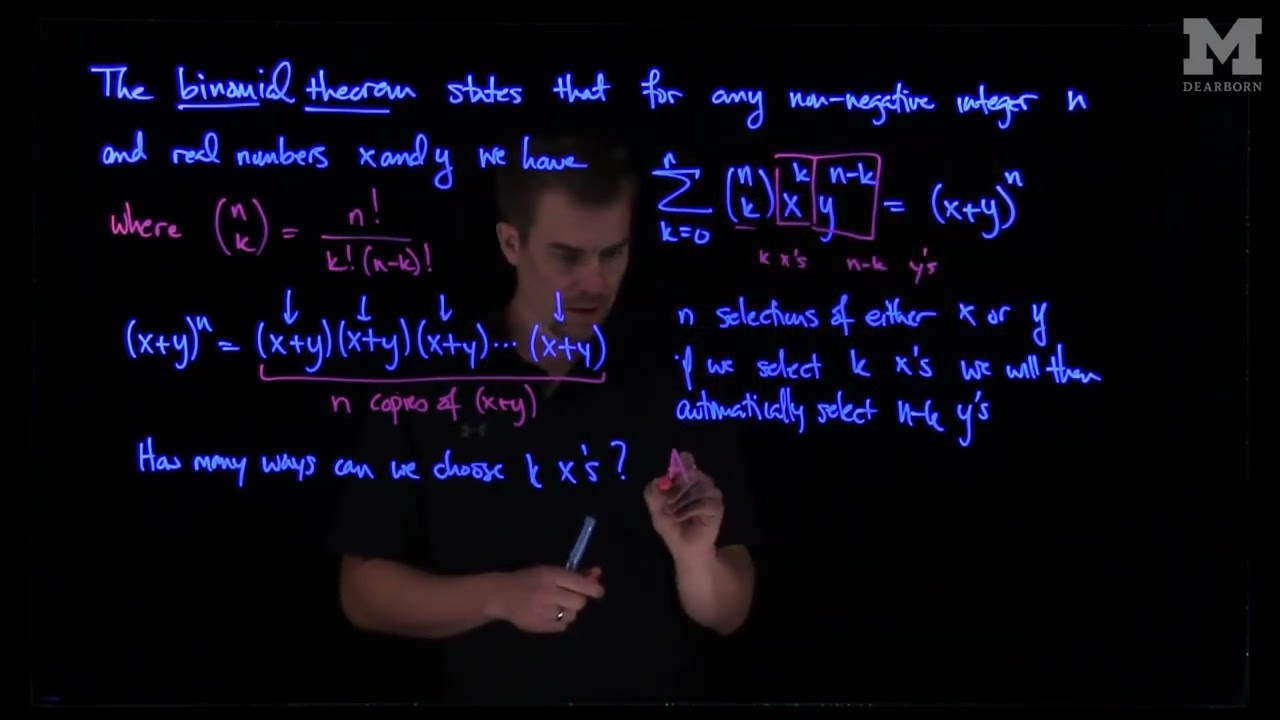 The binomial theorem states that for any non-negative integer n
and real numbers x and y we have ∑_{k=0}^{n} (n k) x^k y^{n-k} = (x+y)^n
where (n k) = n! / k!(n-k)!
k x's n-k y's
(x+y)^n = (x+y)(x+y)(x+y)...(x+y)
n copies of (x+y)
n selections of either x or y
if we select k x's we will then
automatically select n-k y's
How many ways can we choose k x's? A
M
DEARBORN